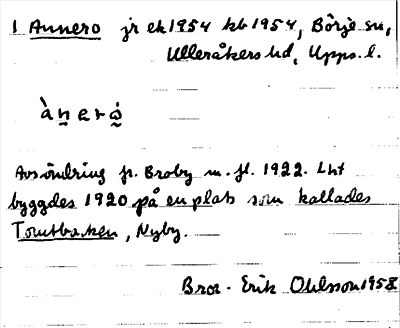 1 Annero jr ek 1954 kb 1954, Börje sn,
Ulleråkers hd, Upps. l.
àn̤erȯ̤
Avsöndring fr. Broby m. fl. 1922. Lht
byggdes 1920 på en plats som kallades
Tomtbacken, Nyby.
Bror-Erik Ohlsson 1958